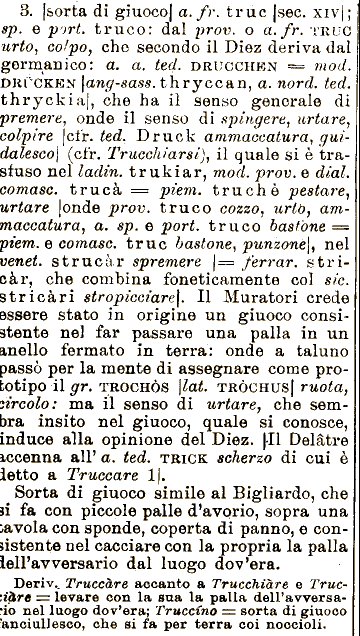 3. |sorta di giuoco| a. fr. truc |sec. XIV|;
sp. e port. truco: dal prov. o a. fr. TRUC
urto, colpo, che secondo il Diez deriva dal
germanico: a. a. ted. DRUCCHEN = mod.
DRÜCKEN |ang-sass. thryccan, a. nord. ted.
thryckia|, che ha il senso generale di
premere, onde il senso di spingere, urtare,
colpire |cfr. ted. Druck ammaccatura, gui-
dalesco| (cfr. Trucchiarsi), il quale si è tra-
sfuso nel ladin. trukiar, mod. prov. e dial.
comasc. trucà = piem. truchè pestare,
urtare |onde prov. truco cozzo, urto, am-
maccatura, a. sp. e port. truco bastone =
piem. e comasc. truc bastone, punzone|, nel
venet. strucàr spremere |= ferrar. stri-
càr, che combina foneticamente col sic.
stricàri stropicciare|. Il Muratori crede
essere stato in origine un giuoco consi-
stente nel far passare una palla in un
anello fermato in terra: onde a taluno
passò per la mente di assegnare come pro-
totipo il gr. TROCHÒS |lat. TRÒCHUS| ruota,
circolo: ma il senso di urtare, che sem-
bra insito nel giuoco, quale si conosce,
induce alla opinione del Diez. |Il Delâtre
accenna all' a. ted. TRICK scherzo di cui è
detto a Truccare 1|.
Sorta di giuoco simile al Bigliardo, che
si fa con piccole palle d'avorio, sopra una
tavola con sponde, coperta di panno, e con-
sistente nel cacciare con la propria la palla
dell'avversario dal luogo dov'era.
Deriv. Truccàre accanto a Trucchiàre e Truc-
ciàre = levare con la sua la palla dell'avversa-
rio nel luogo dov'era; Truccíno = sorta di giuoco
fanciullesco, che si fa per terra coi noccioli.